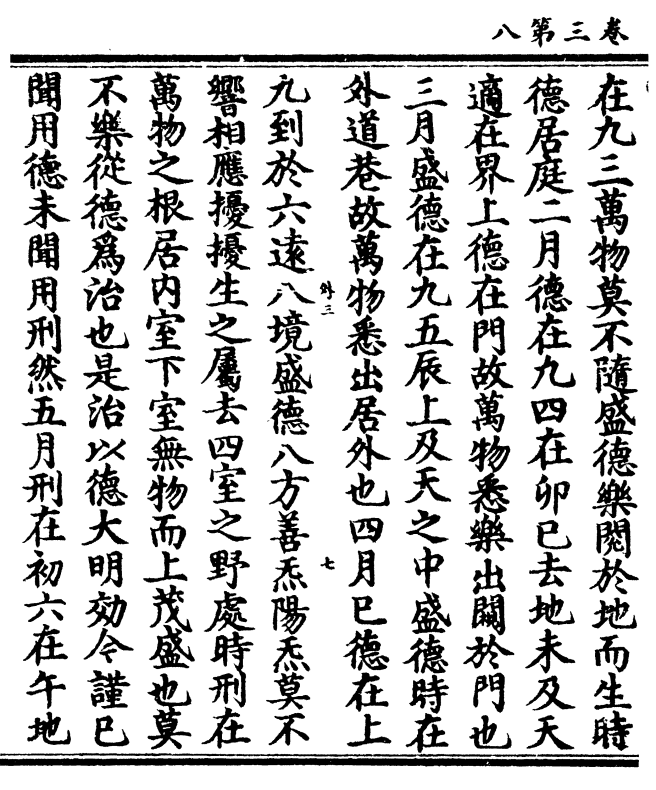 卷三第八
在九三萬物莫不隨盛德樂闚於地而生時
德居庭二月德在九四在卯已去地未及天
適在界上德在門故萬物悉樂出闚於門也
三月盛德在九五辰上及天之中盛德時在
外道巷故萬物悉出居外也四月巳德在上
外三
七
九到於六遠八境盛德八方善炁陽炁莫不
響相應擾擾生之屬去四室之野處時刑在
萬物之根居内室下室無物而上茂盛也莫
不樂從德爲治也是治以德大明効今謹已
聞用德未聞用刑然五月刑在初六在午地